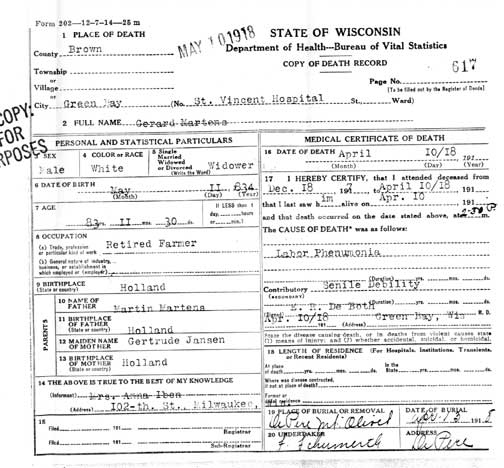 Form 202—12-7-14—25 m
1 PLACE OF DEATH
County Brown
Township
or
Village
or
City Green Bay (No. St. Vincent Hospital St; Ward)
2 FULL NAME Gerard Martens
MAY 10 1918
STATE OF WISCONSIN
Department of Health—Bureau of Vital Statistics
COPY OF DEATH RECORD
617
Page No.
(To be filled out by the Register of Deeds)
COPY:
FOR
POSES
PERSONAL AND STATISTICAL PARTICULARS
SEX
Male
4 COLOR OR RACE
White
5 Single
Married
Widowed
or Divorced
(Write the Word)
Widower
6 DATE OF BIRTH
May 11 834
(Month) (Day) (Year)
7 AGE
83 yrs. 11 mos. 30 ds.
If LESS than 1
day, hours
or min.?
8 OCCUPATION
(a) Trade, profession
or particular kind of work
Retired Farmer
(b) General nature of industry,
business, or establishment in
which employed (or employer)
9 BIRTHPLACE
(State or country)
Holland
PARENTS
10 NAME OF
FATHER
Martin Martens
11 BIRTHPLACE OF
FATHER
(State or country)
Holland
12 MAIDEN NAME
OF MOTHER
Gertrude Jansen
13 BIRTHPLACE OF
MOTHER
(State or country)
Holland
14 THE ABOVE IS TRUE TO THE BEST OF MY KNOWLEDGE
(Informant) Mrs. Anna Iben
(Address) 102-th. St. Milwaukee,
15
Filed 191 Registrar
Filed 191 Sub-Registrar
MEDICAL CERTIFICATE OF DEATH
16 DATE OF DEATH April 10/18 191
(Month) (Day) (Year)
17 I HEREBY CERTIFY, that I attended deceased from
Dec. 18 191 7 to April 10/18 191
that I last saw h im alive on Apr. 10 191
and that death occurred on the date stated above, at m.
The CAUSE OF DEATH* was as follows:
Lobar Phenumonia
(Duration) yrs. mos. ds.
Contributory Senile Debility
(SECONDARY)
(Duration) yrs. mos. ds.
E. R. De Both M. D.
Apr. 10/18 191 (Address) Green Bay, Wis
state
(1) means of injury; and (2) whether accidental, suicidal, or homicidal.
18 LENGTH OF RESIDENCE (For Hospitals, Institutions, Transients,
or Recent Residents)
At place
of death yrs. mos. ds.
In the
State yrs. mos. ds.
Where was disease contracted,
if not at place of death?
Former or
19 PLACE OF BURIAL OR REMOVAL
De Pere Mt Olivet
DATE OF BURIAL
Apr 13 191 8
20 UNDERTAKER
ADDRESS
De Pere